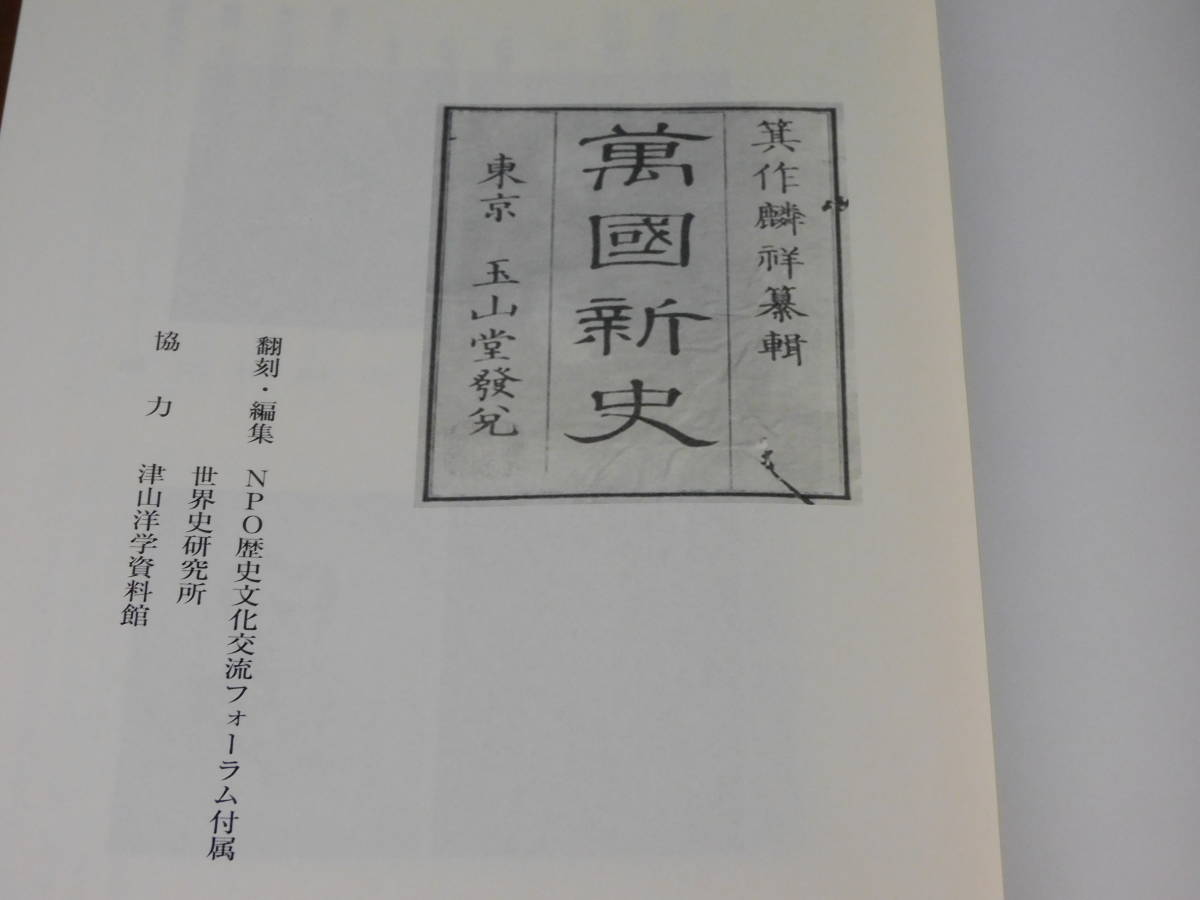 箕作麟祥纂輯
萬國新史
東京 玉山堂發兌
翻刻・編集 NPO歴史文化交流フォーラム付属
世界史研究所
協力 津山洋学資料館